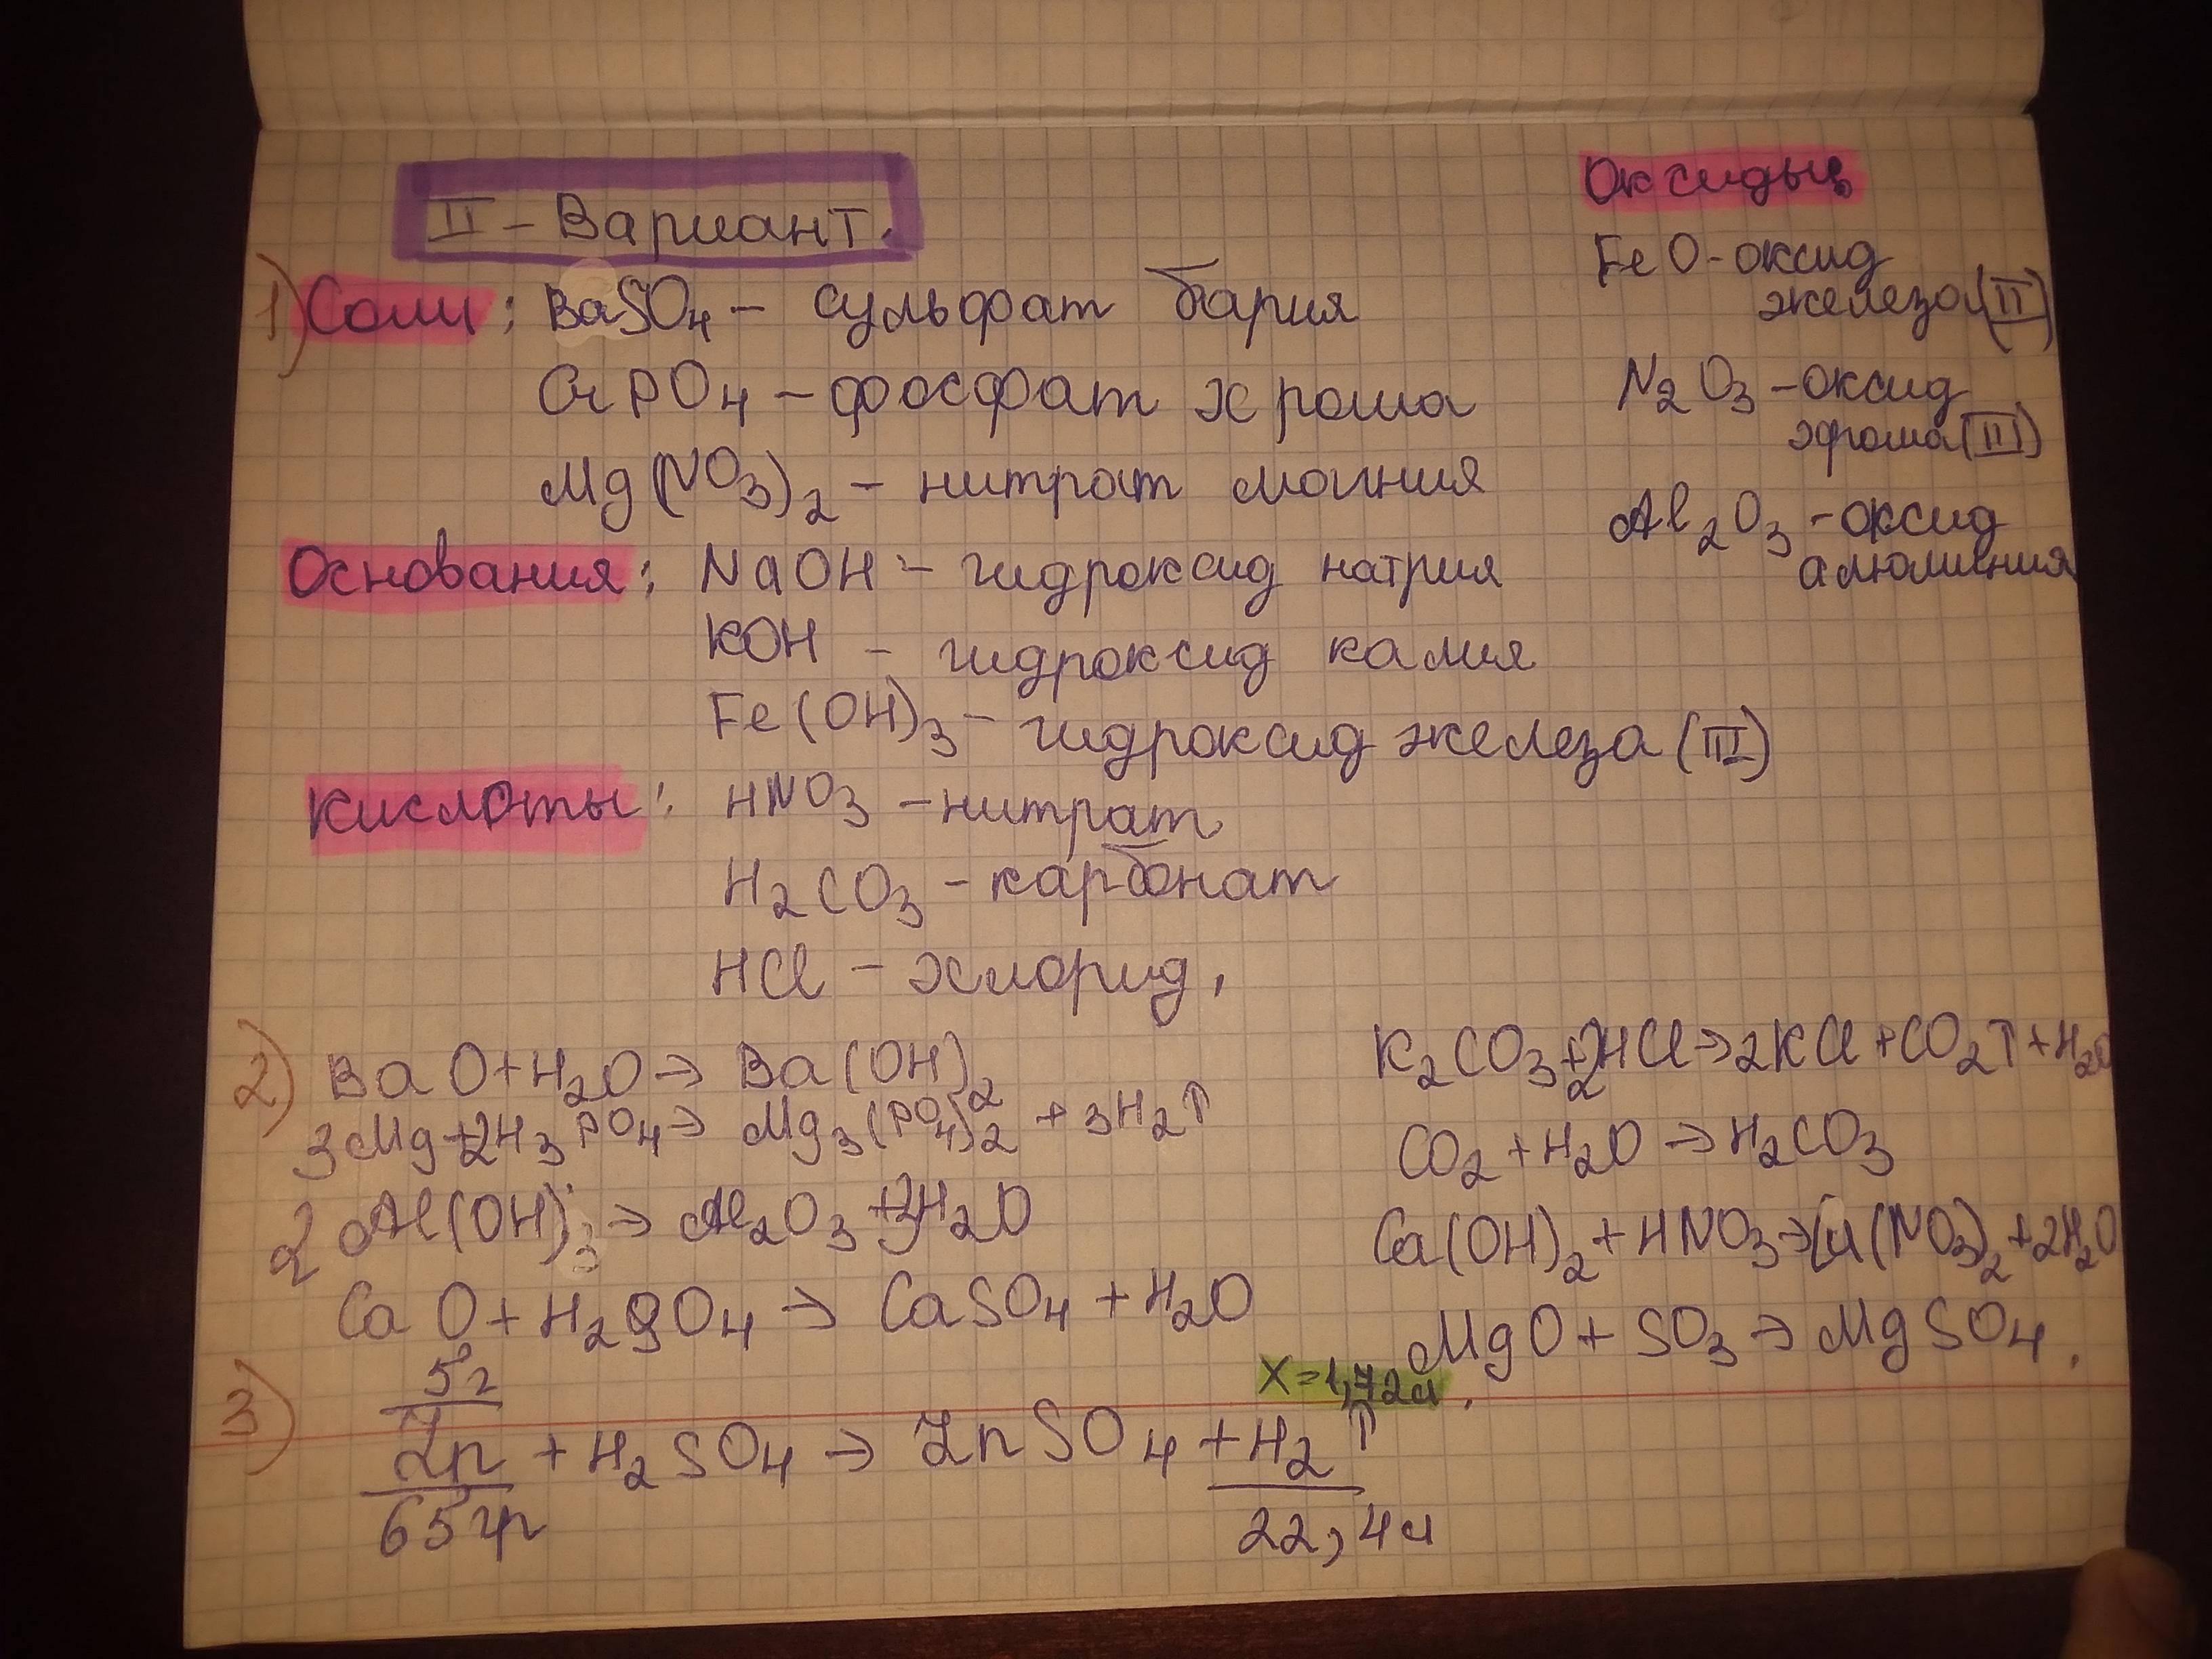 II - Вариант.
1) Соли: BaSO4 - сульфат бария
CrPO4 - фосфат хрома
Mg(NO3)2 - нитрат магния
Основания: NaOH - гидроксид натрия
KOH - гидроксид калия
Fe(OH)3 - гидроксид железа (III)
Кислоты: HNO3 - нитрат
H2CO3 - карбонат
HCl - хлорид,
Оксиды:
FeO - оксид
железа (II)
N2O3 - оксид
хрома (III)
Al2O3 - оксид
алюминия
2) BaO + H2O → Ba(OH)2
3Mg + 2H3PO4 → Mg3(PO4)2 + 3H2↑
2Al(OH)3 → Al2O3 + 3H2O
CaO + H2SO4 → CaSO4 + H2O
K2CO3 + 2HCl → 2KCl + CO2↑ + H2O
CO2 + H2O → H2CO3
Ca(OH)2 + HNO3 → Ca(NO3)2 + 2H2O
MgO + SO3 → MgSO4.
3) 5г
x = 1,72л.
Zn + H2SO4 → ZnSO4 + H2↑
65гр
22,4л